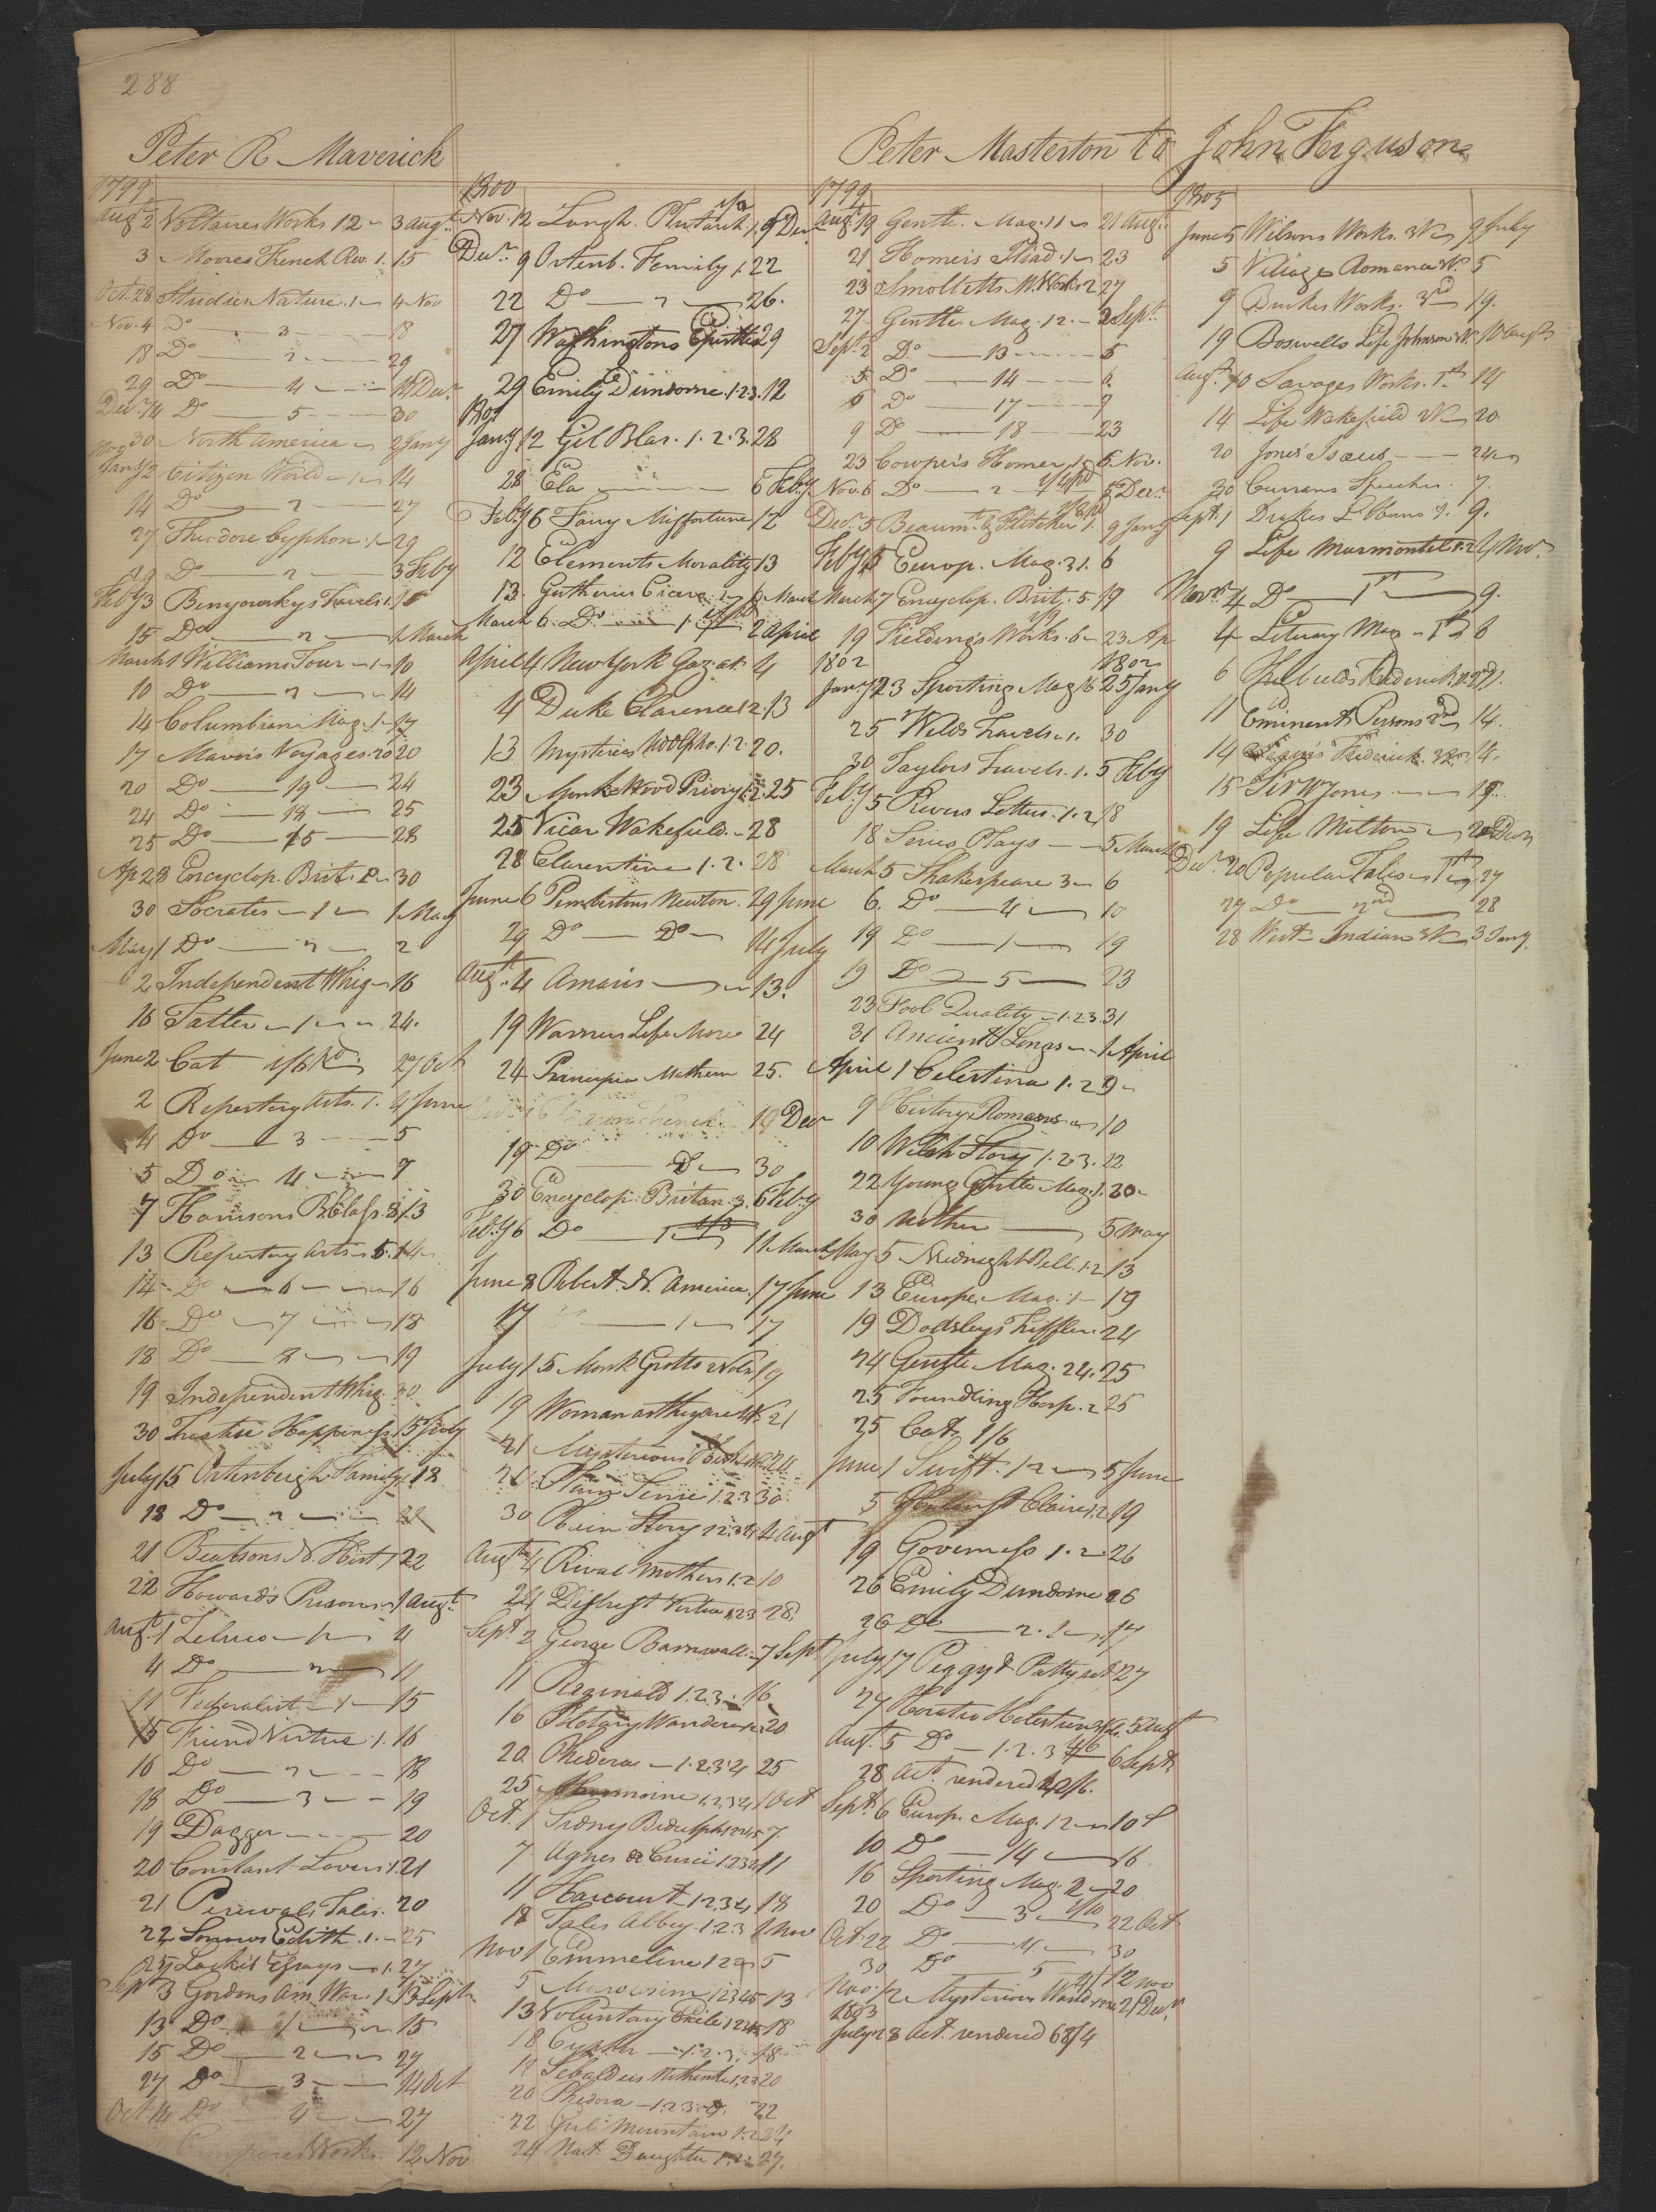 288
Peter R Maverick
1799
Augt 2 Voltaires Works 12 3 Augt
3 Moores French Rev. 1. 15
Oct. 28 Studies Nature. 1 4 Nov
Nov. 4 Do 3 18
18 Do 2 29
29 Do 4 14 Decr
Decr 14 Do 5 30
30 North America 2 Jany
Jany 2 Citizen World 1 14
14 Do 2 27
27 Theodore Cyphon. 1 29
29 Do 2 3 Feby
Feby 3 Benyowskys Travels 1. 15
15 Do 2 1 March
March 1 Williams Tour 1 10
10 Do 2 14
14 Columbian Mag. 1 17
17 Mavors Voyages. 20 20
20 Do 19 24
24 Do 18 25
25 Do 15 28
Ap 28 Encyclop. Brit. 2 30
30 Socrates 1 1 May
May 1 Do 2 2
2 Independent Whig 16
16 Tatler 1 24.
June 2 Cat 1/6 Pd 27 Oct
2 Repertory Arts. 1. 4 June
4 Do 3 5
5 Do 4 7
7 Harrisons B. Class. 8 13
13 Repertory Arts 5. 14
14 Do 6 16
16 Do 7 18
18 Do 8 19
19 Independent Whig. 30
30 Trusler Happiness 15 July
July 15 Ortenburgh Family 1 18
18 Do 2 21
21 Beatsons N. Hist 1 22
22 Howards Prisons 1 Augt
Augt. 1 Zeluco 1 4
4 Do 2 11
11 Federalist 1 15
15 Friend Virtue 1. 16
16 Do 2 18
18 Do 3 19
19 Dagger 20
20 Constant Lovers 1. 21
21 Percivals Tales. 20
22 Sorrows Edith. 1. 25
25 Lockes Essays 1. 27
Sept 3 Gordons Am. War. 1 13 Sept
13 Do 1 15
15 Do 2 27
27 Do 3 14 Oct
Oct 14 Do 4 27
Cowpers Works. 12 Nov
1800
Nov. 12 Langh. Plutarch 1. 9 Decr
Decr 9 Ortenb. Family 1. 22
22 Do 2 26.
27 Washingtons Epistles 29
29 Emily Dundorne. 1.2.3. 12
1801
Jany 12 Gil Blas. 1. 2. 3. 28
28 Ela 6 Feby
Feby 6 Fairy Misfortune 12
12 Elements Morality 13
13. Guthries Cicero 1 6 March
March 6. Do 1 2 April
April 4 New York Gaz. at 4
4 Duke Clarence 1 2. 13
13 Mysteries Udolpho. 1. 2. 20.
23 Monkswood Priory 1.2. 25
25 Vicar Wakefield. 28
28 Clarentine 1. 2. 28
June 6 Pembertons Newton. 29 June
29 Do Do 14 July
Augt 4 Amaris 13.
19 Warners Life More 24
24 Principia Mathem 25.
19 Decr
19 Do 30
30 Encyclop. Britan. 3. 6 Feby
Feby 6 Do 1 11 March
June 8 Robert. N. America. 17 June
17 1 17
July 15 Monk Grotto 2 Vols 19
19 Woman as they are 21
21 Mysterious 24
24 Plain Sense 1.2.3 30
30 Ruin Story 1.2.3.4 4 Augt
Augt 4 Rival Mothers 1.2 10
24 Distrest Virtue 1.2.3 28.
Sept 2 George Barnwell 7 Sept
11 Reginald 1.2.3. 16
16 Solitary Wanderer 20
20 Phedora 1.2.3.4 25
25 1.2.3.4 1 Oct
Oct. 1 Sidney Bidulph 1.2.3.4.5 7
7 Agnes De Curci 1.2.3.4 11
11 Harcourt 1.2.3.4 18
18 Tales Abbey. 1.2.3 1 Nov
Nov 1 Emmeline 1 2 5
5 1.2.3.4.5 13
13 Voluntary Exile 1.2.3.4.5 18
18 1.2.3. 18
19 Sebaldus Nothanker 1.2.3 20
20 Phedora 1.2.3.4. 22
22 Girl Mountain 1.2 24
24 Nat. Daughter 1.2. 27.
Peter Masterton to John Ferguson
1799
Augt 19 Gentle. Mag. 11 21 Augt
21 Homers Iliad. 1 23
23 Smolletts M. Works 2 27
27 Gentle. Mag. 12. 2 Sept.
Sept. 2 Do 13 5
5. Do 14 6.
6 Do 17 9
9 Do 18 23
23 Cowpers Homer 1 6 Nov.
Nov. 6 Do 2 5 Decr
Decr. 5 Beaumt. & Fletcher 1. 9 Jany
Feby 5 Europ. Mag. 31. 6
March 7 Encyclop. Brit. 5. 19
19 Fieldings Works. 6 23 Ap
1802 1802
Jany 23 Sporting Mag 16 25 Jany
25 Welds Travels. 1. 30
30 Taylors Travels. 1. 5 Feby
Feby 5 Rivers Letters. 1. 2 18
18 Series Plays 5 March
March 5 Shakespeare 3 6
6. Do 4 10
19 Do 1 19
19 Do 5 23
23 Fool Quality 1.2.3. 31
31 Ancient Songs 1 April
April 1 Celestina 1. 2 9
9 History Romans 10
10 Welsh Story 1.2.3. 22
22 Young Gentle Mag. 1. 30
30 Mother 5 May
May 5 Midnight Bell. 1.2 13
13 Europe. Mag. 1 19
19 Dodsleys Trifles. 24
24 Gentle Mag. 24. 25
25 Foundling Hosp. 2 25
25 Cat. 1/6
June 1 Swift. 12 5 June
5 St Claire 1.2 19
19 Governess 1. 2 26
26 Emily Dundorne 26
26 Do 2. 1 17
July 17 Peggy & Patty 27
27 Horatio Holstein 5 Augt
Augt. 5 Do 1. 2. 3 6 Sept
28 Act. rendered 42/6.
Sept. 6 Europ. Mag. 12 10 S
10 Do 14 16
16 Sporting Mag. 2 20
20 Do 3 22 Oct
Oct 22 Do 4 30
30 Do 5 12 Nov
Nov. 12 Mysterious 21 Decr.
1803
July 28 Act. rendered 68/4
1805
June 5 Wilsons Works. 9 July
5 Village Romance 5
9 Burkes Works. 3rd 19.
19 Boswells Life Johnson 10 Augt
Augt. 10 Savages Works. 1st 14
14 Life Wakefield 20
20 Jones Isaeus 24
30 Currans Speeches. 7.
Sept. 1 Drakes L. Hours 3. 9.
9 Life Marmontel 1. 2 4 Nov.
Novr. 4 Do 1st 9.
4 Literary Mag 1st 6
6 Frederick 11.
11 Eminent Persons 2nd 14.
14 Frederick 14.
15 Sir W Jones 19.
19 Life Milton 20 Decr
Decr. 20 Popular Tales 1st 27
27 Do 2nd 28
28 West Indian 3 Jany.